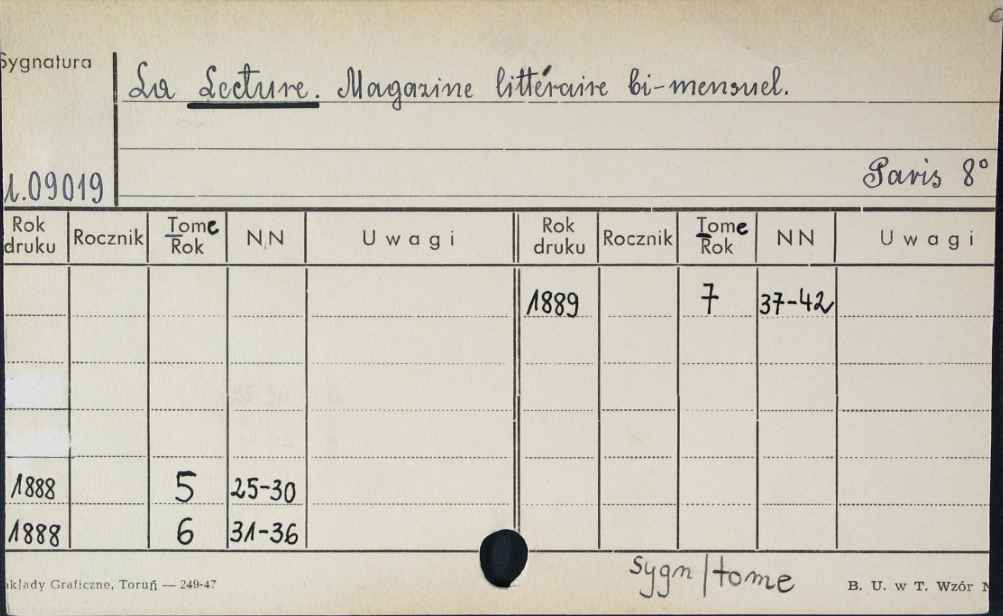 Sygnatura
La Lecture. Magazine littéraire bi-mensuel.
Paris 8°
1.09019
Rok druku Rocznik Tome Rok NN Uwagi Rok druku Rocznik Tome Rok NN Uwagi
1889 7 37-42
1888 5 25-30
1888 6 31-36
sygn/tome
Graficzne, Toruń — 249-47
B. U. w T. Wzór